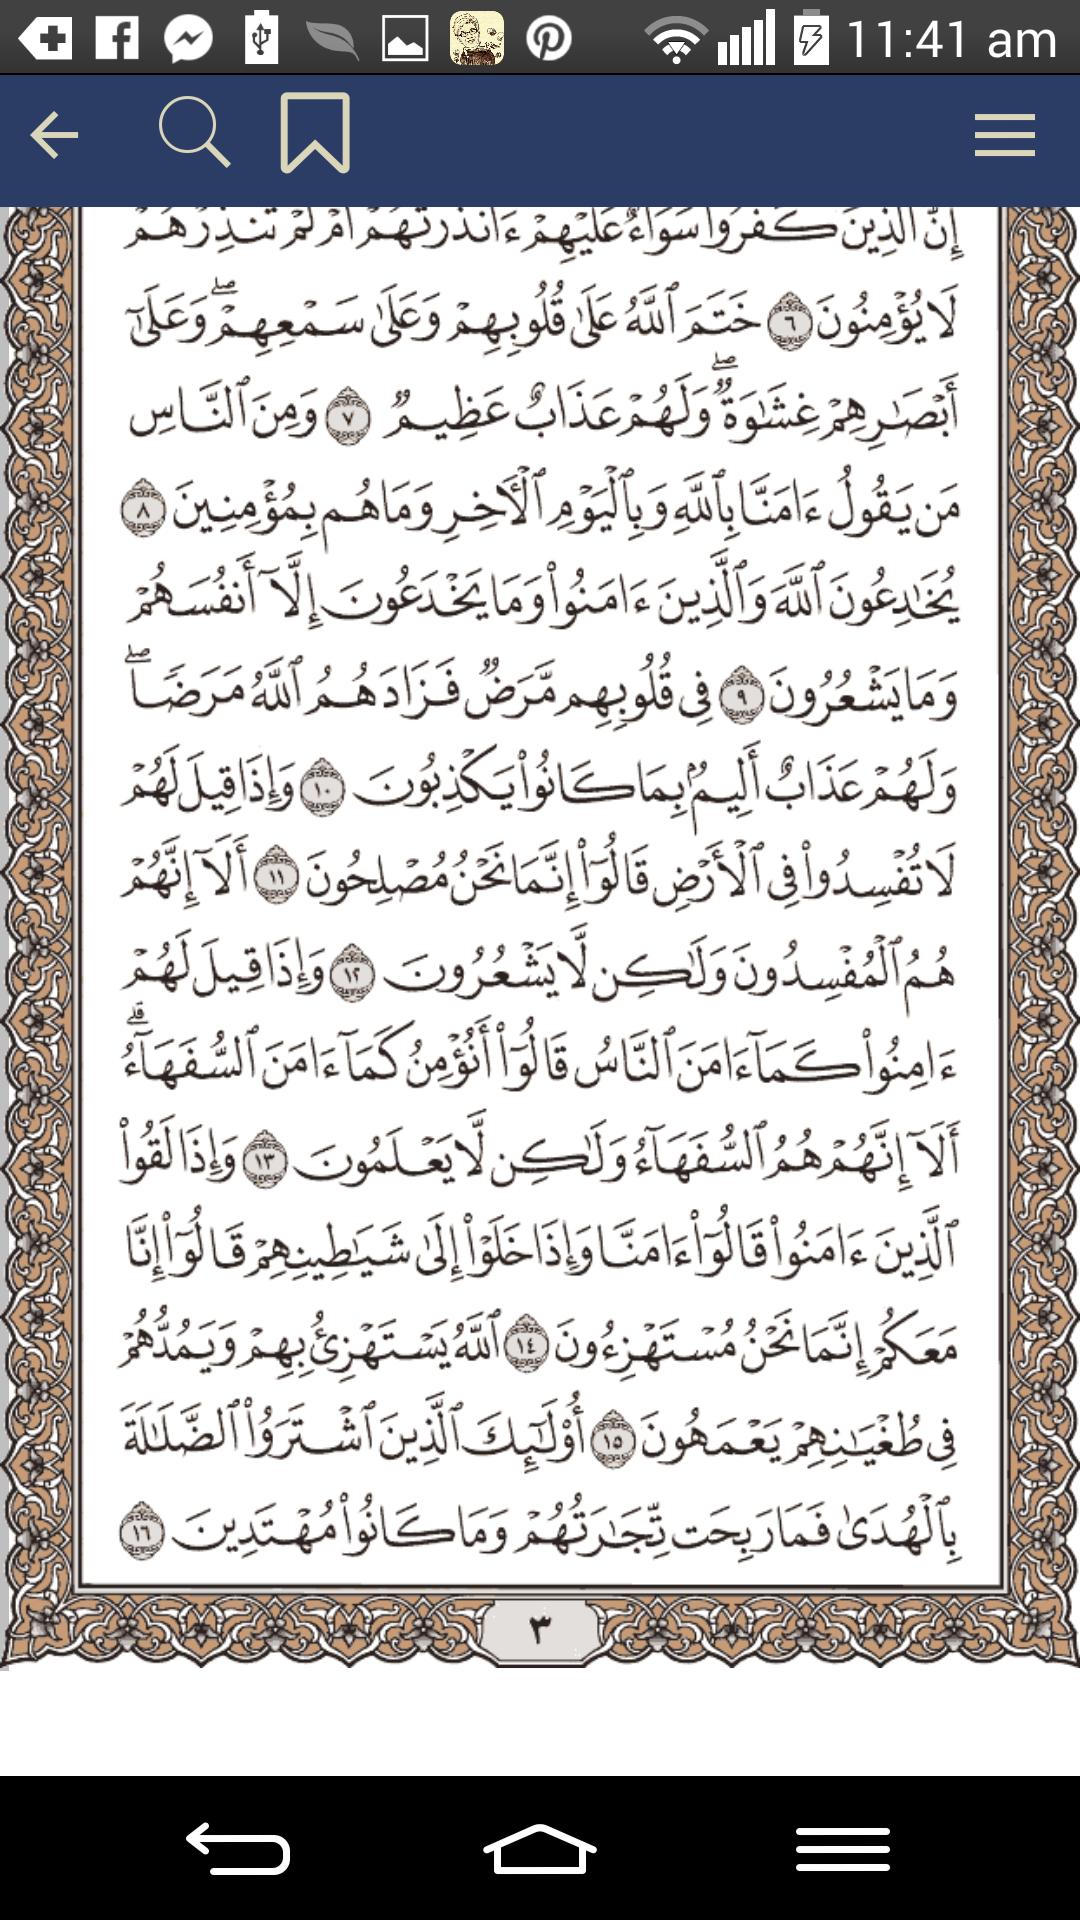 11:41 am
إِنَّ ٱلَّذِينَ كَفَرُوا۟ سَوَآءٌ عَلَيْهِمْ ءَأَنذَرْتَهُمْ أَمْ لَمْ تُنذِرْهُمْ
لَا يُؤْمِنُونَ ٦ خَتَمَ ٱللَّهُ عَلَىٰ قُلُوبِهِمْ وَعَلَىٰ سَمْعِهِمْ ۖ وَعَلَىٰٓ
أَبْصَٰرِهِمْ غِشَٰوَةٌ ۖ وَلَهُمْ عَذَابٌ عَظِيمٌ ٧ وَمِنَ ٱلنَّاسِ
مَن يَقُولُ ءَامَنَّا بِٱللَّهِ وَبِٱلْيَوْمِ ٱلْءَاخِرِ وَمَا هُم بِمُؤْمِنِينَ ٨
يُخَٰدِعُونَ ٱللَّهَ وَٱلَّذِينَ ءَامَنُوا۟ وَمَا يَخْدَعُونَ إِلَّآ أَنفُسَهُمْ
وَمَا يَشْعُرُونَ ٩ فِى قُلُوبِهِم مَّرَضٌ فَزَادَهُمُ ٱللَّهُ مَرَضًا ۖ
وَلَهُمْ عَذَابٌ أَلِيمٌۢ بِمَا كَانُوا۟ يَكْذِبُونَ ١٠ وَإِذَا قِيلَ لَهُمْ
لَا تُفْسِدُوا۟ فِى ٱلْأَرْضِ قَالُوٓا۟ إِنَّمَا نَحْنُ مُصْلِحُونَ ١١ أَلَآ إِنَّهُمْ
هُمُ ٱلْمُفْسِدُونَ وَلَٰكِن لَّا يَشْعُرُونَ ١٢ وَإِذَا قِيلَ لَهُمْ
ءَامِنُوا۟ كَمَآ ءَامَنَ ٱلنَّاسُ قَالُوٓا۟ أَنُؤْمِنُ كَمَآ ءَامَنَ ٱلسُّفَهَآءُ ۗ
أَلَآ إِنَّهُمْ هُمُ ٱلسُّفَهَآءُ وَلَٰكِن لَّا يَعْلَمُونَ ١٣ وَإِذَا لَقُوا۟
ٱلَّذِينَ ءَامَنُوا۟ قَالُوٓا۟ ءَامَنَّا وَإِذَا خَلَوْا۟ إِلَىٰ شَيَٰطِينِهِمْ قَالُوٓا۟ إِنَّا
مَعَكُمْ إِنَّمَا نَحْنُ مُسْتَهْزِءُونَ ١٤ ٱللَّهُ يَسْتَهْزِئُ بِهِمْ وَيَمُدُّهُمْ
فِى طُغْيَٰنِهِمْ يَعْمَهُونَ ١٥ أُو۟لَٰٓئِكَ ٱلَّذِينَ ٱشْتَرَوُا۟ ٱلضَّلَٰلَةَ
بِٱلْهُدَىٰ فَمَا رَبِحَت تِّجَٰرَتُهُمْ وَمَا كَانُوا۟ مُهْتَدِينَ ١٦
٣